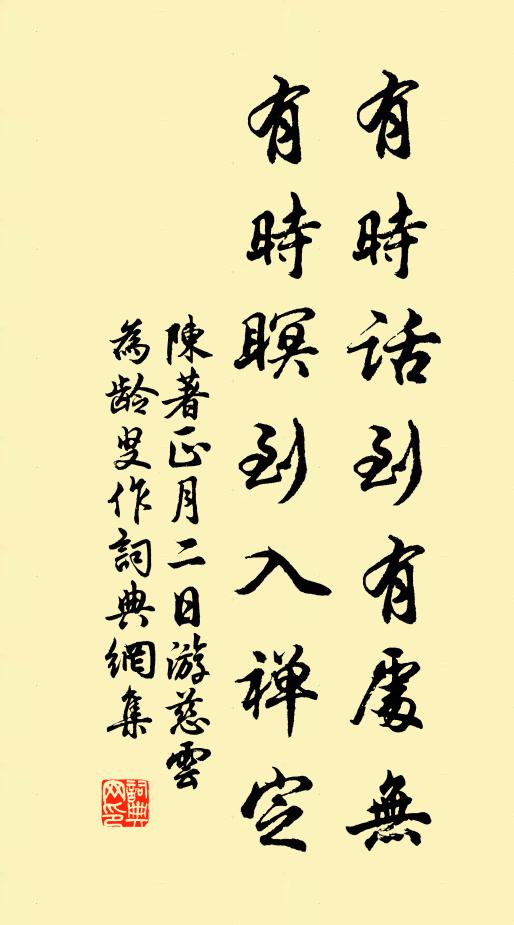 有時話到有處無
有時瞑到入禅定
陳著正月二日游慈雲
為龄叟作詞典網集
詞典网印